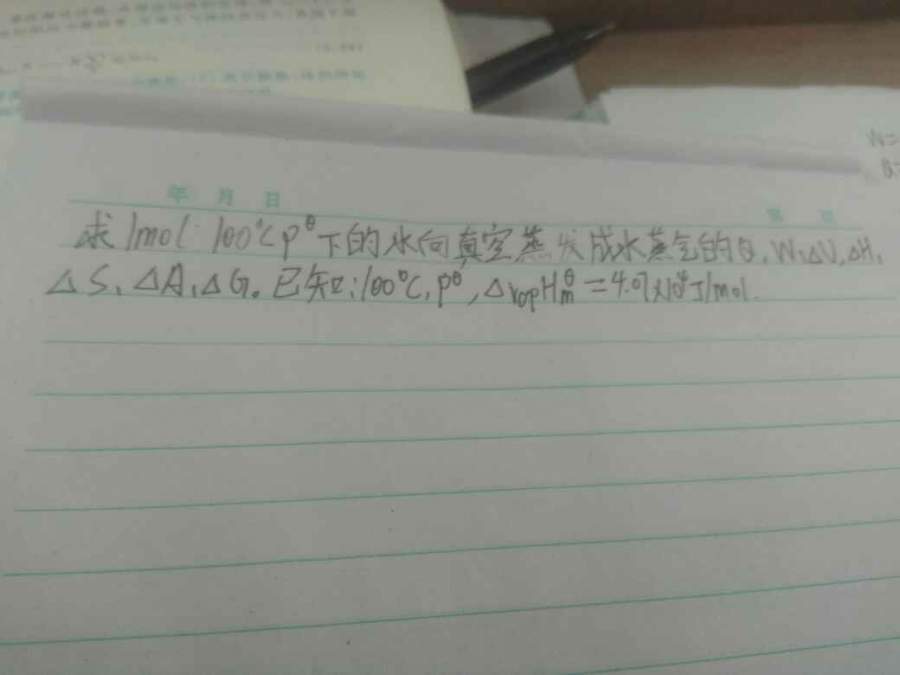 年 月 日
求1mol 100℃ p^θ下的水向真空蒸发成水蒸气的Q、W、ΔU、ΔH、
ΔS、ΔA、ΔG。已知:100℃, p^θ, ΔvapH_m^θ=4.07×10^4J/mol.